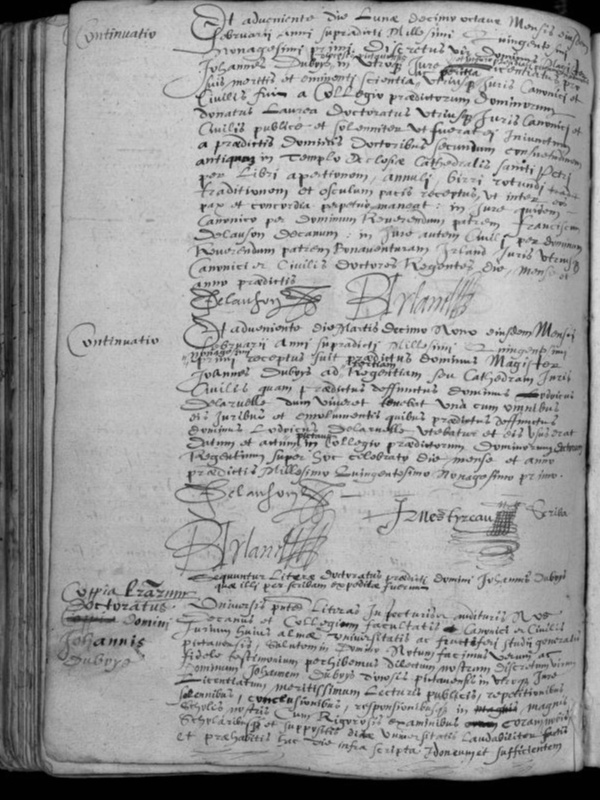 Continuatio
Et adveniente die Lunæ decimo octava Mensis eiusdem
Februarii Anni supradicti Millesimi Quingentesimi
Nonagesimi primi, Discretus vir dominus
Johannes Duboys in utroq Jure Licentiatus pro
suis meritis et eminenti scientia utriusq Juris Canonici et
Civilis fuit a Collegio prædictorum dominorum
donatus Laurea doctoratus utriusq Juris Canonici et
Civilis publice et solenniter et fuerat ei Iniunctum
a prædictis dominis doctoribus secundum consuetudinem
antiquam in Templo Ecclesiæ Cathedralis sancti Petri
per Libri apertionem, annuli, birri rotundi
traditionem et osculum pacis receptus, ut inter eos
pax et concordia perpetuo maneat: in Jure quidem
Canonico per dominum Reverendum patrem Franciscum
delauson decanum: in Jure autem Civili per dominum
Reverendum patrem Bonaventuram Irland Juris utriusq
Canonici et Civilis doctores Regentes die, mense et
anno prædictis
Delauson
B Irland
Continuatio
Et adveniente die Martis decimo Nono eiusdem Mensis
Februarii Anni supradicti Millesimi Quingentesimi
Nonagesimi
primi receptus fuit prædictus dominus Magister
Joannes Duboys ad Regentiam seu Cathedram Juris
Civilis quam prædictus deffunctus dominus Lodoicus
Delaruelle dum viveret tenebat una cum omnibus
eis Juribus et emolumentis quibus prædictus deffunctus
dominus Lodoicus Delaruelle utebatur et eis usus erat
datum et actum in Collegio prædictorum dominorum doctorum
Regentium super hoc celebrato die mense et anno
prædictis Millesimo Quingentesimo Nonagesimo primo.
Delauson
J Mestyreau Scriba
B Irland
Sequuntur Literæ doctoratus prædicti domini Johannis Duboys
quæ illi per scribam expeditæ fuerunt
Coppia Lrarum
Doctoratus
domini
Johannis
Duboys
Universis pntes Literas Inspecturis audituris Nos
Decanus et Collegium facultatis Canonici et Civilis
Jurium huius almæ Universitatis ac fructiferi studii generalis
pictavensis, salutem in domino Notum facimus
fidele testimonium perhibemus dilectum nostrum discretum virum
Dominum Johannem Duboys pictavensis in utroq Jure
Licentiatum, meritissimum Lecturis publicis, repetitionibus
solennibus, conclusionibus, responsionibusq in magnis
scholis nostris Cum Rigorosis examinibus coram
Scholaribusq et suppositis dictæ Universitatis Laudabiliter factis
et præhabitis hac die infra scripta Idoneum et sufficientem